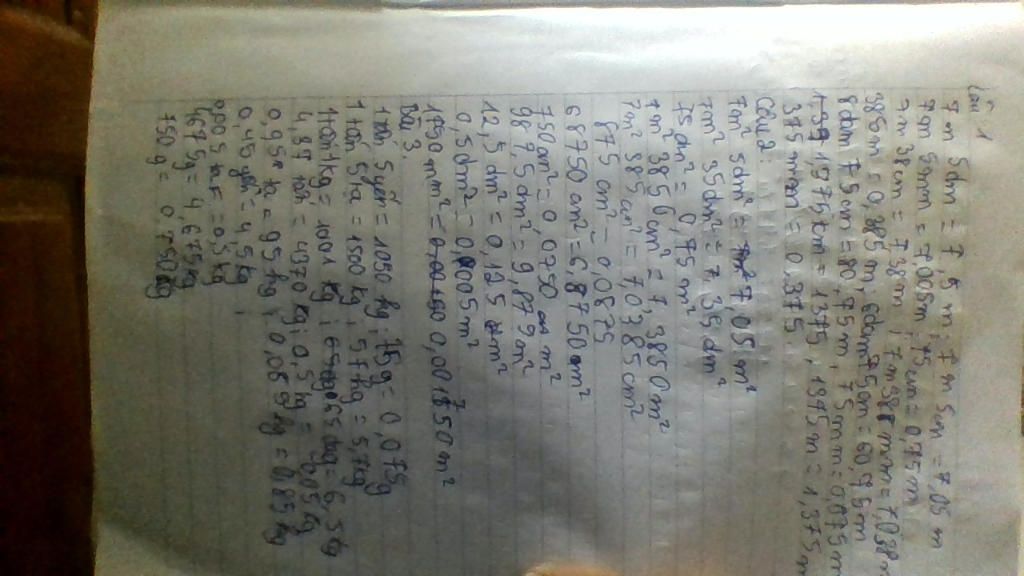 Câu 1
7m 5dm = 7,5m; 7m 5cm = 7,05 m
7m 5mm = 7,005m; 75cm = 0,75m
7m 38cm = 7,38m; 7m 38mm = 7,038m
385m = 0,385m, 60dm 75cm = 60,75m
8dm 75cm = 80,75m, 75mm = 0,075m
1,375km = 1375, 1375m = 1,375m
375mm = 0,375
Câu 2:
7m² 5dm² = 7,05m²
7m² 35dm² = 7,35dm²
75dm² = 0,75m²
7m² 3850cm² = 7,3850m²
7m² 385cm² = 7,0385cm²
875cm² = 0,0875
750cm² = 0,0750 m²
68750cm² = 6,8750 m²
987,5dm² = 9,875m²
12,5dm² = 0,125m²
0,5dm² = 0,005m²
1750mm² = 0,001750m²
Bài 3.
1 tấn 5 yến = 1050 kg; 75g = 0,075g
1 tấn 5 tạ = 1500 kg; 57hg = 5,7kg
1 tấn 1kg = 1001 kg; dag = 6,5kg
4,37 tấn = 4370 kg; 0,5kg = 0,05kg
0,95 tạ = 95kg; kg = 0,85kg
0,45 yến = 4,5kg;
0,005 tấn = 0,5kg
4675g = 4,675kg
750g = 0,750kg